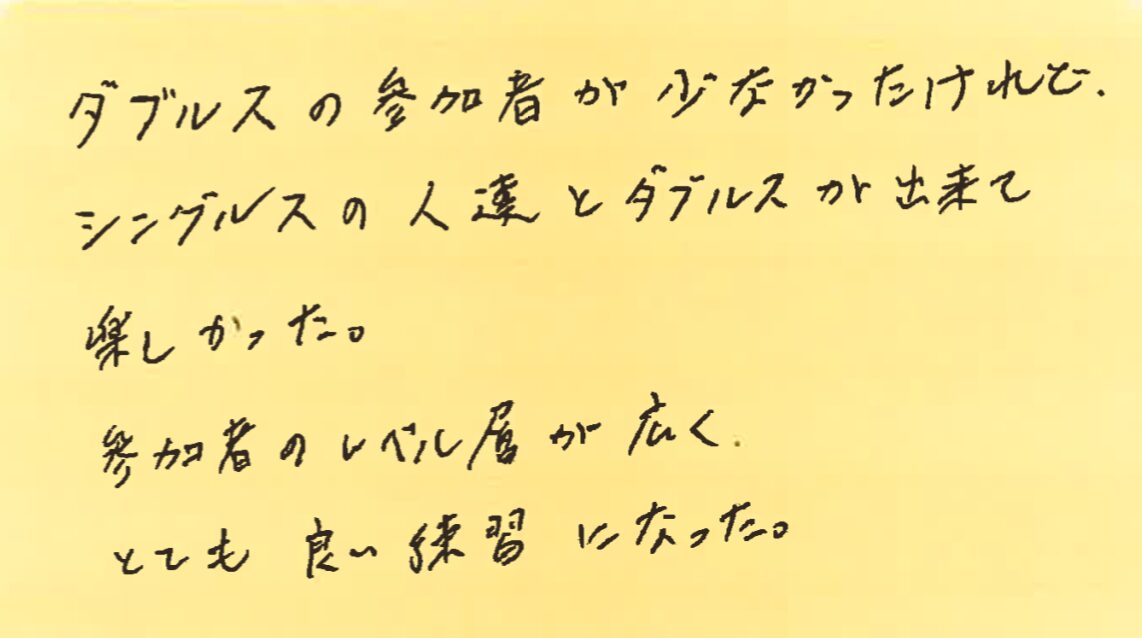 ダブルスの参加者が少なかったけれど、
シングルスの人達とダブルスが出来て
楽しかった。
参加者のレベル層が広く、
とても良い練習になった。